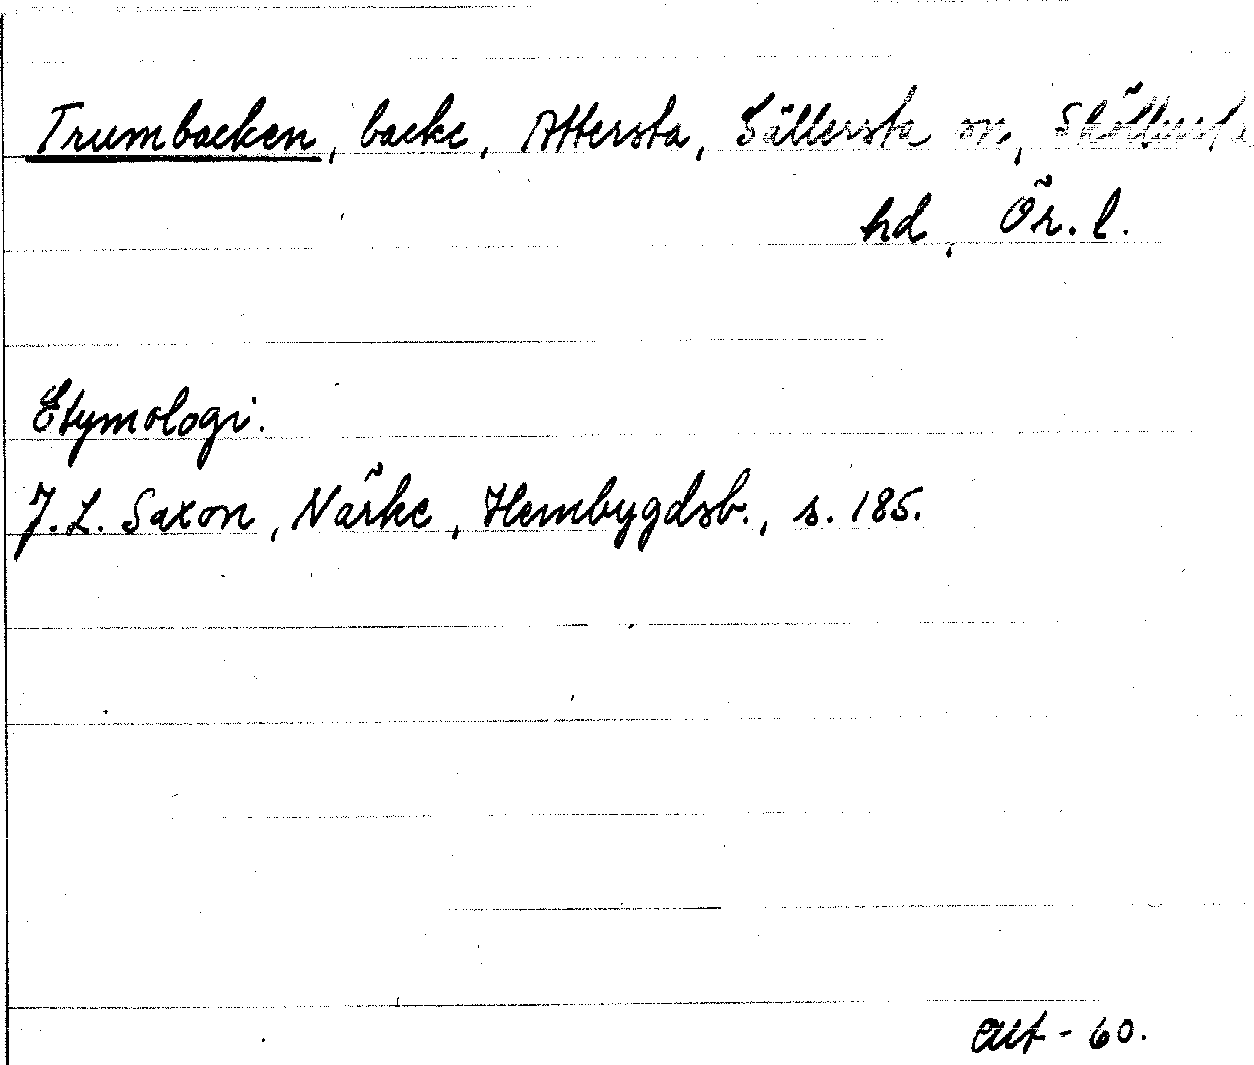 Trumbacken, backe, Attersta, Sällersta sn, Sköllersta
hd, Ör. l.
Etymologi.
J. L. Saxon, Närke, Hembygdsb., s. 185.
- 60.